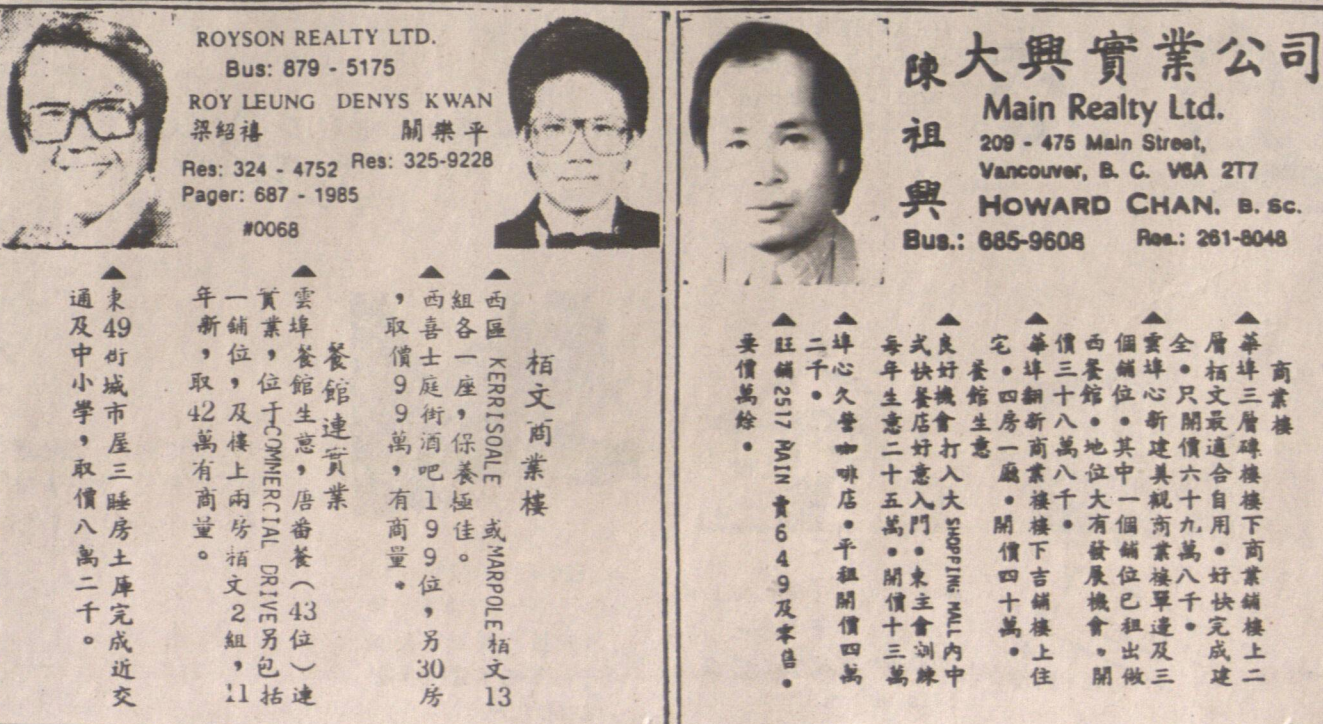 ROYSON REALTY LTD.
Bus: 879 - 5175
ROY LEUNG DENYS KWAN
梁紹禧 關樂平
Res: 324 - 4752 Res: 325-9228
Pager: 687 - 1985
#0068
栢文商業樓
▲西區 KERRISDALE 或MARPOLE栢文13
組各一座,保養極佳。
▲西喜士庭街酒吧199位,另30房
,取價99萬,有商量。
餐館連實業
▲雲埠餐館生意,唐番餐(43位)連
實業,位于COMMERCIAL DRIVE另包括
一鋪位,及樓上兩房栢文2組,11
年新,取42萬有商量。
▲東49街城市屋三睡房土庫完成近交
通及中小學,取價八萬二千。
大興實業公司
陳祖興
Main Realty Ltd.
209 - 475 Main Street,
Vancouver, B. C. V6A 2T7
HOWARD CHAN. B. SC.
Bus.: 685-9608 Res.: 261-8048
商業樓
▲華埠三層磚樓樓下商業鋪樓上二
層栢文最適合自用。好快完成建
全。只開價六十九萬八千。
▲雲埠心新建美觀商業樓單邊及三
個鋪位。其中一個鋪位已租出做
西餐館。地位大有發展機會。開
價三十八萬八千。
▲華埠翻新商業樓樓下吉鋪樓上住
宅。四房一廳。開價四十萬。
餐館生意
▲良好機會打入大 SHOPPING MALL內中
式快餐店好意入門。東主會訓練
每年生意二十五萬。開價十三萬
▲埠心久營咖啡店。平租開價四萬
二千。
▲旺鋪2517 MAIN 賣649及零售。
要價萬餘。